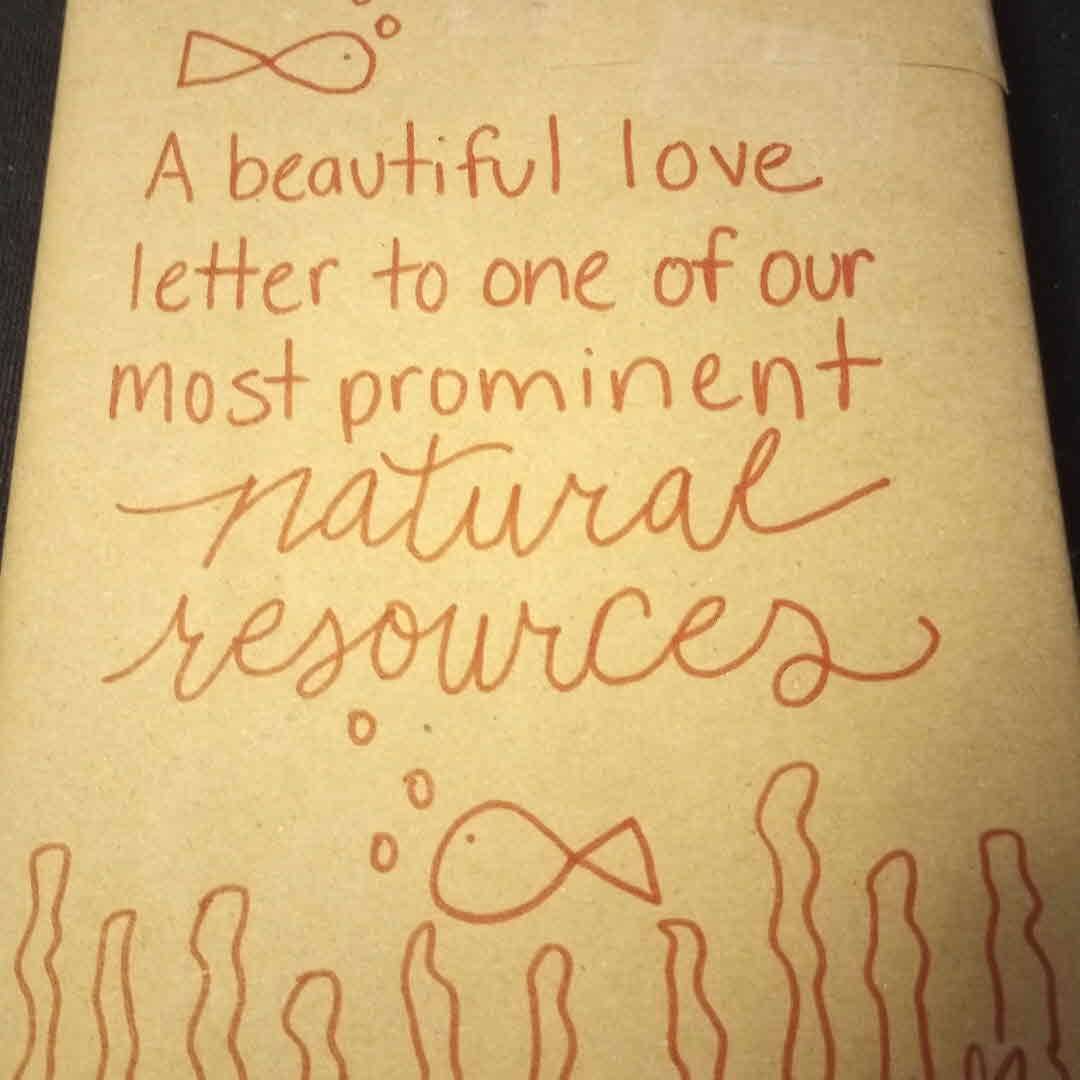 A beautiful love
letter to one of our
most prominent
natural
resources